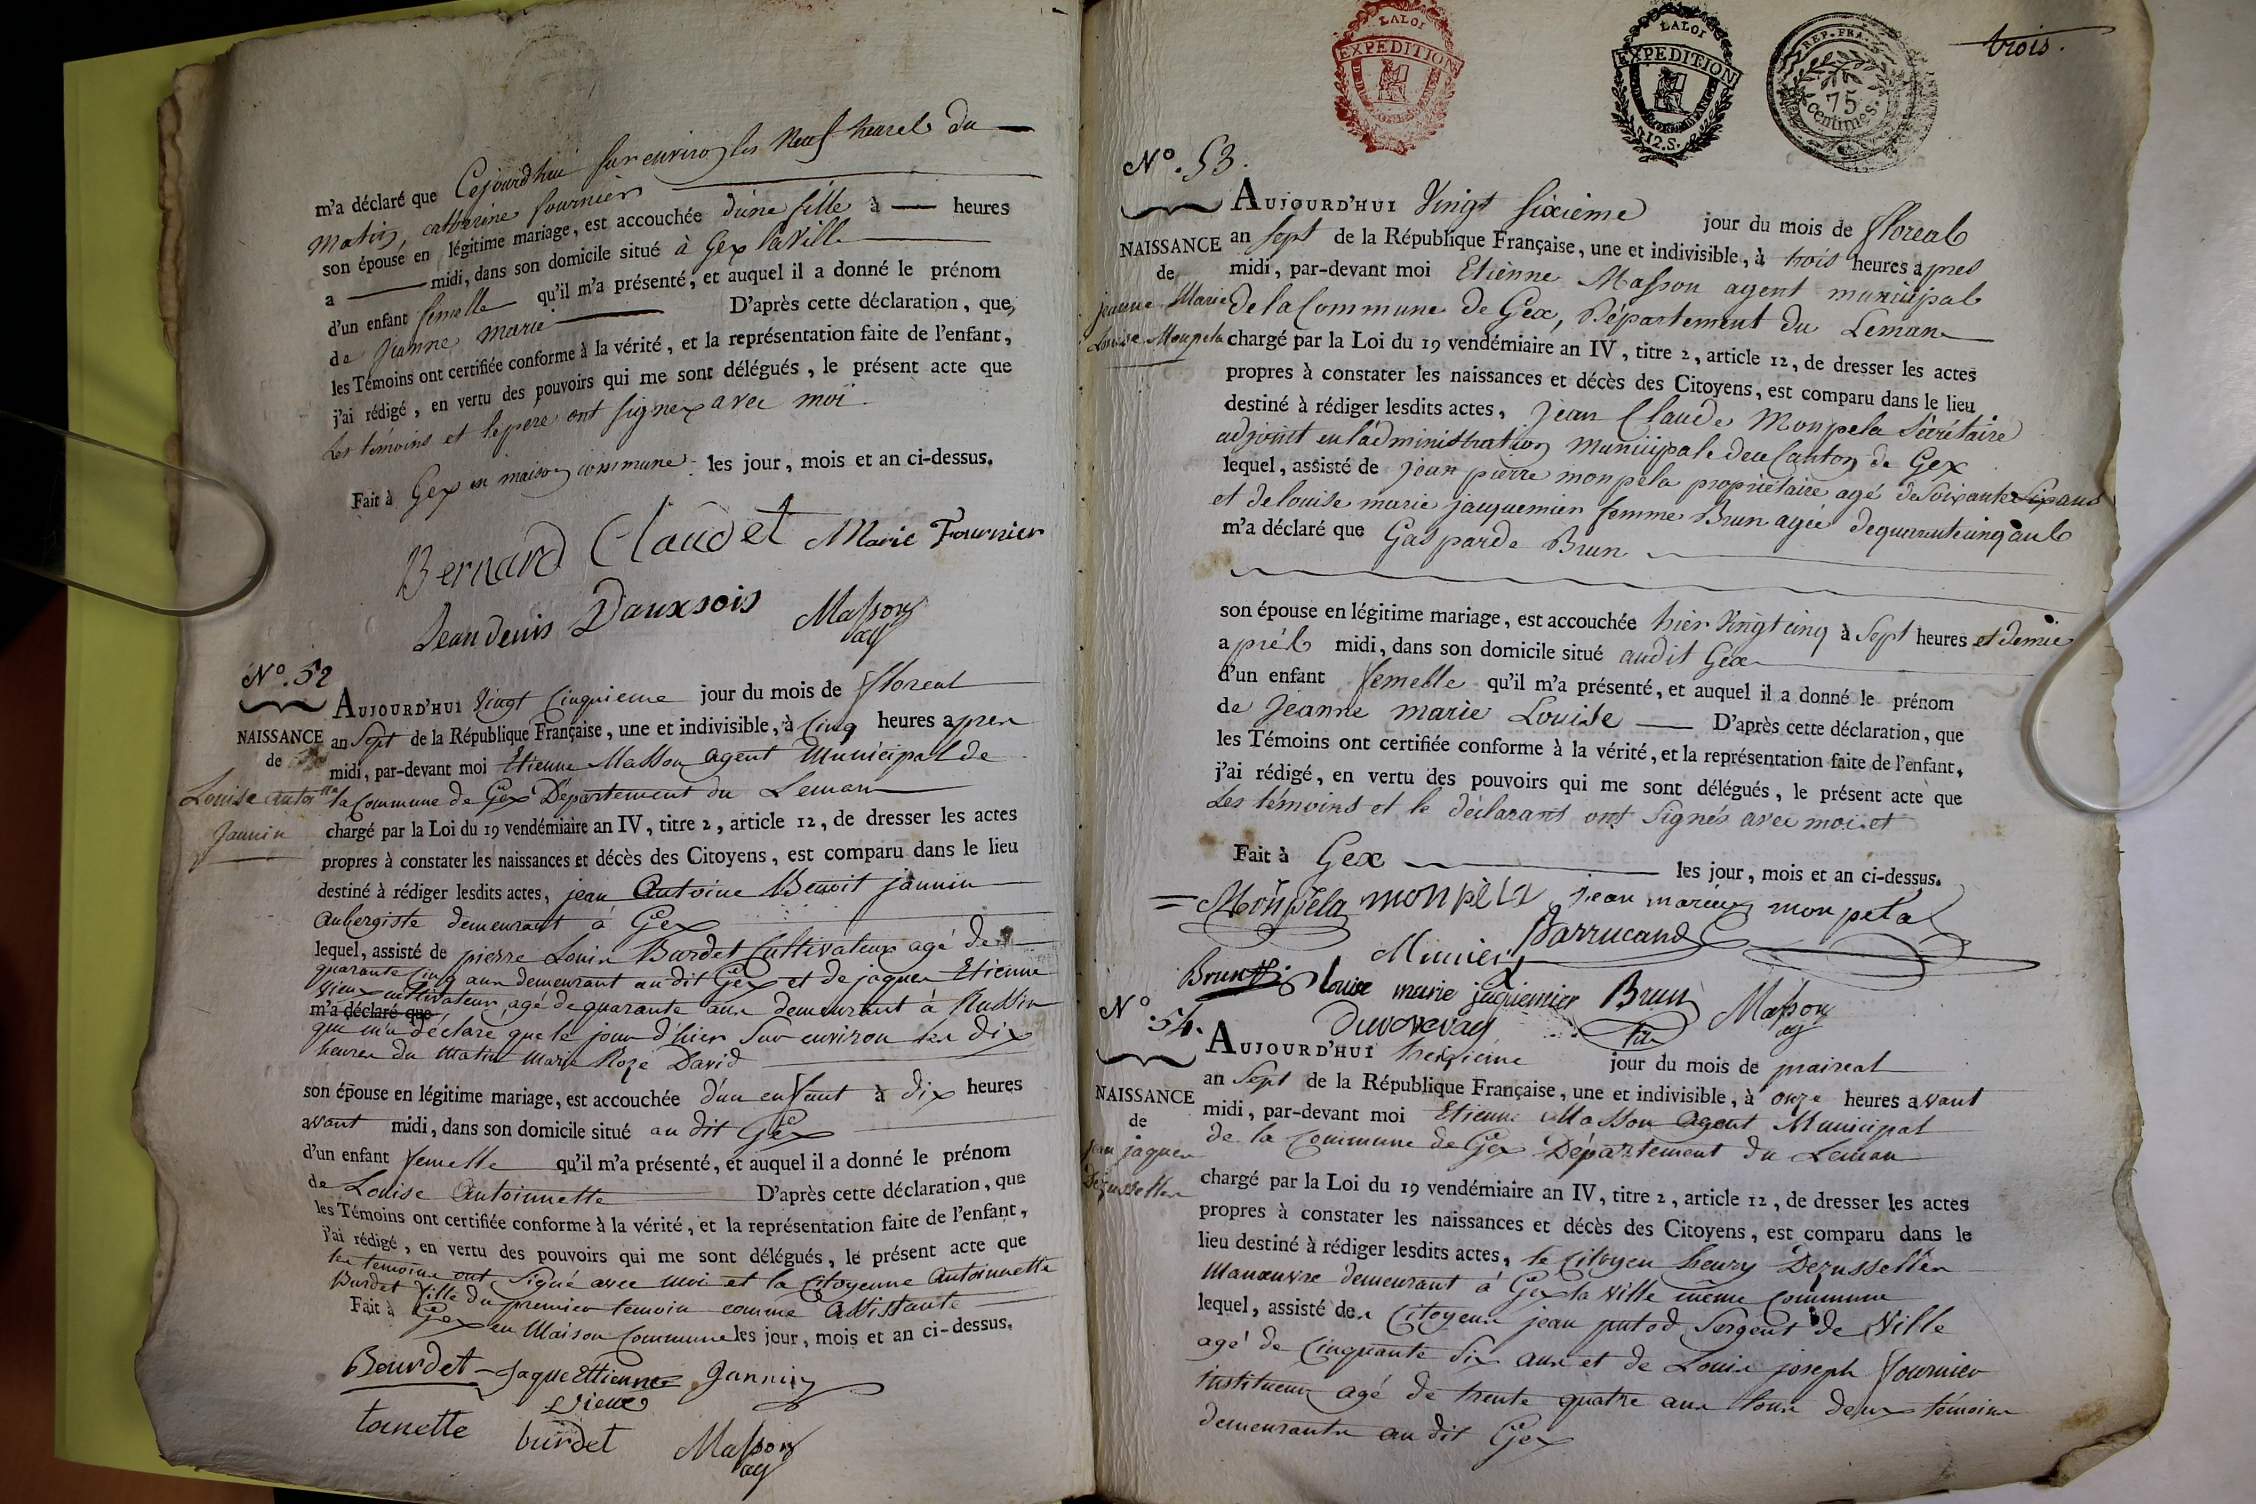 m'a déclaré que Cejourdhui sur environ les Neuf heures du
matin, catherine fournier
son épouse en légitime mariage, est accouchée d'une fille à heures
a midi, dans son domicile situé à Gex la Ville
d'un enfant femelle qu'il m'a présenté, et auquel il a donné le prénom
de Jeanne marie D'après cette déclaration, que
les Témoins ont certifiée conforme à la vérité, et la représentation faite de l'enfant,
j'ai rédigé, en vertu des pouvoirs qui me sont délégués, le présent acte que
les témoins et le pere ont signez avec moi.
Fait à Gex en maison commune les jour, mois et an ci-dessus.
Bernard Claudet Marie Fournier
Jean denis Dauxsois Masson
ag
N° . 52
AUJOURD'HUI Vingt Cinquieme jour du mois de floreal
NAISSANCE an Sept de la République Française, une et indivisible, à Cinq heures apres
de midi, par-devant moi Etienne Masson agent Municipal de
Louise antoitte la Commune de Gex Département du Leman
Jannin chargé par la Loi du 19 vendémiaire an IV, titre 2, article 12, de dresser les actes
propres à constater les naissances et décès des Citoyens, est comparu dans le lieu
destiné à rédiger lesdits actes, jean Antoine Benoit jannin
Aubergiste demeurant à Gex
lequel, assisté de pierre Louis Burdet Cultivateur agé de
quarante Cinq ans demeurant au dit Gex et de jaques Etienne
vieux cultivateur agé de quarante ans demeurant à
m'a déclaré que
qui m'a déclaré que le jour d'hier Sur environ les dix
heures du Matin Marie Roze David
son épouse en légitime mariage, est accouchée d'un enfant à dix heures
avant midi, dans son domicile situé au dit Gex
d'un enfant femelle qu'il m'a présenté, et auquel il a donné le prénom
de Louise Antoinnette D'après cette déclaration, que
les Témoins ont certifiée conforme à la vérité, et la représentation faite de l'enfant,
j'ai rédigé, en vertu des pouvoirs qui me sont délégués, le présent acte que
les temoins ont signé avec moi et la Citoyenne Antoinnette
Burdet fille du premier temoin comme Assistante
Fait à Gex en Maison Commune les jour, mois et an ci-dessus.
Bourdet Jaque Ettienne Jannin
Vieux
tounette burdet Masson
ag
LA LOI
EXPEDITION
LA LOI
EXPEDITION
12.S.
REP. FRA.
75
Centimes.
trois.
N° . 53.
AUJOURD'HUI Vingt Sixieme jour du mois de floreal
NAISSANCE an sept de la République Française, une et indivisible, à trois heures apres
de midi, par-devant moi Etienne Masson agent municipal
jeanne Marie de la Commune de Gex, Département du Leman
Louise Monpela chargé par la Loi du 19 vendémiaire an IV, titre 2, article 12, de dresser les actes
propres à constater les naissances et décès des Citoyens, est comparu dans le lieu
destiné à rédiger lesdits actes, Jean Claude Monpela Sécrétaire
adjoint en l'administration municipale du Canton de Gex
lequel, assisté de jean pierre monpela propriétaire agé de Soixante Six ans
et de louise marie jacquemier femme Brun agée de quarante cinq ans
m'a déclaré que Gasparde Brun
son épouse en légitime mariage, est accouchée hier Vingt cinq à Sept heures et demie
après midi, dans son domicile situé audit Gex
d'un enfant femelle qu'il m'a présenté, et auquel il a donné le prénom
de Jeanne marie Louise D'après cette déclaration, que
les Témoins ont certifiée conforme à la vérité, et la représentation faite de l'enfant,
j'ai rédigé, en vertu des pouvoirs qui me sont délégués, le présent acte que
Les témoins et le déclarant ont Signés avec moi et
Fait à Gex les jour, mois et an ci-dessus.
Monpela monpela jean marie monpela
Barrucand
Brun louise marie jaquemier Brun Masson
ag
N° . 54.
AUJOURD'HUI treizieme jour du mois de prairial
NAISSANCE an Sept de la République Française, une et indivisible, à onze heures avant
de midi, par-devant moi Etienne Masson Agent Municipal
jean jaques de la Commune de Gex Département du Leman
Dezussellen chargé par la Loi du 19 vendémiaire an IV, titre 2, article 12, de dresser les actes
propres à constater les naissances et décès des Citoyens, est comparu dans le
lieu destiné à rédiger lesdits actes, le Citoyen henry Dezussellen
Manœuvre demeurant à Gex la Ville même Commune
lequel, assisté des Citoyens jean putod Sergent de Ville
agé de Cinquante Six ans et de Louis joseph fournier
instituteur agé de trente quatre ans tous deux témoins
demeurants au dit Gex